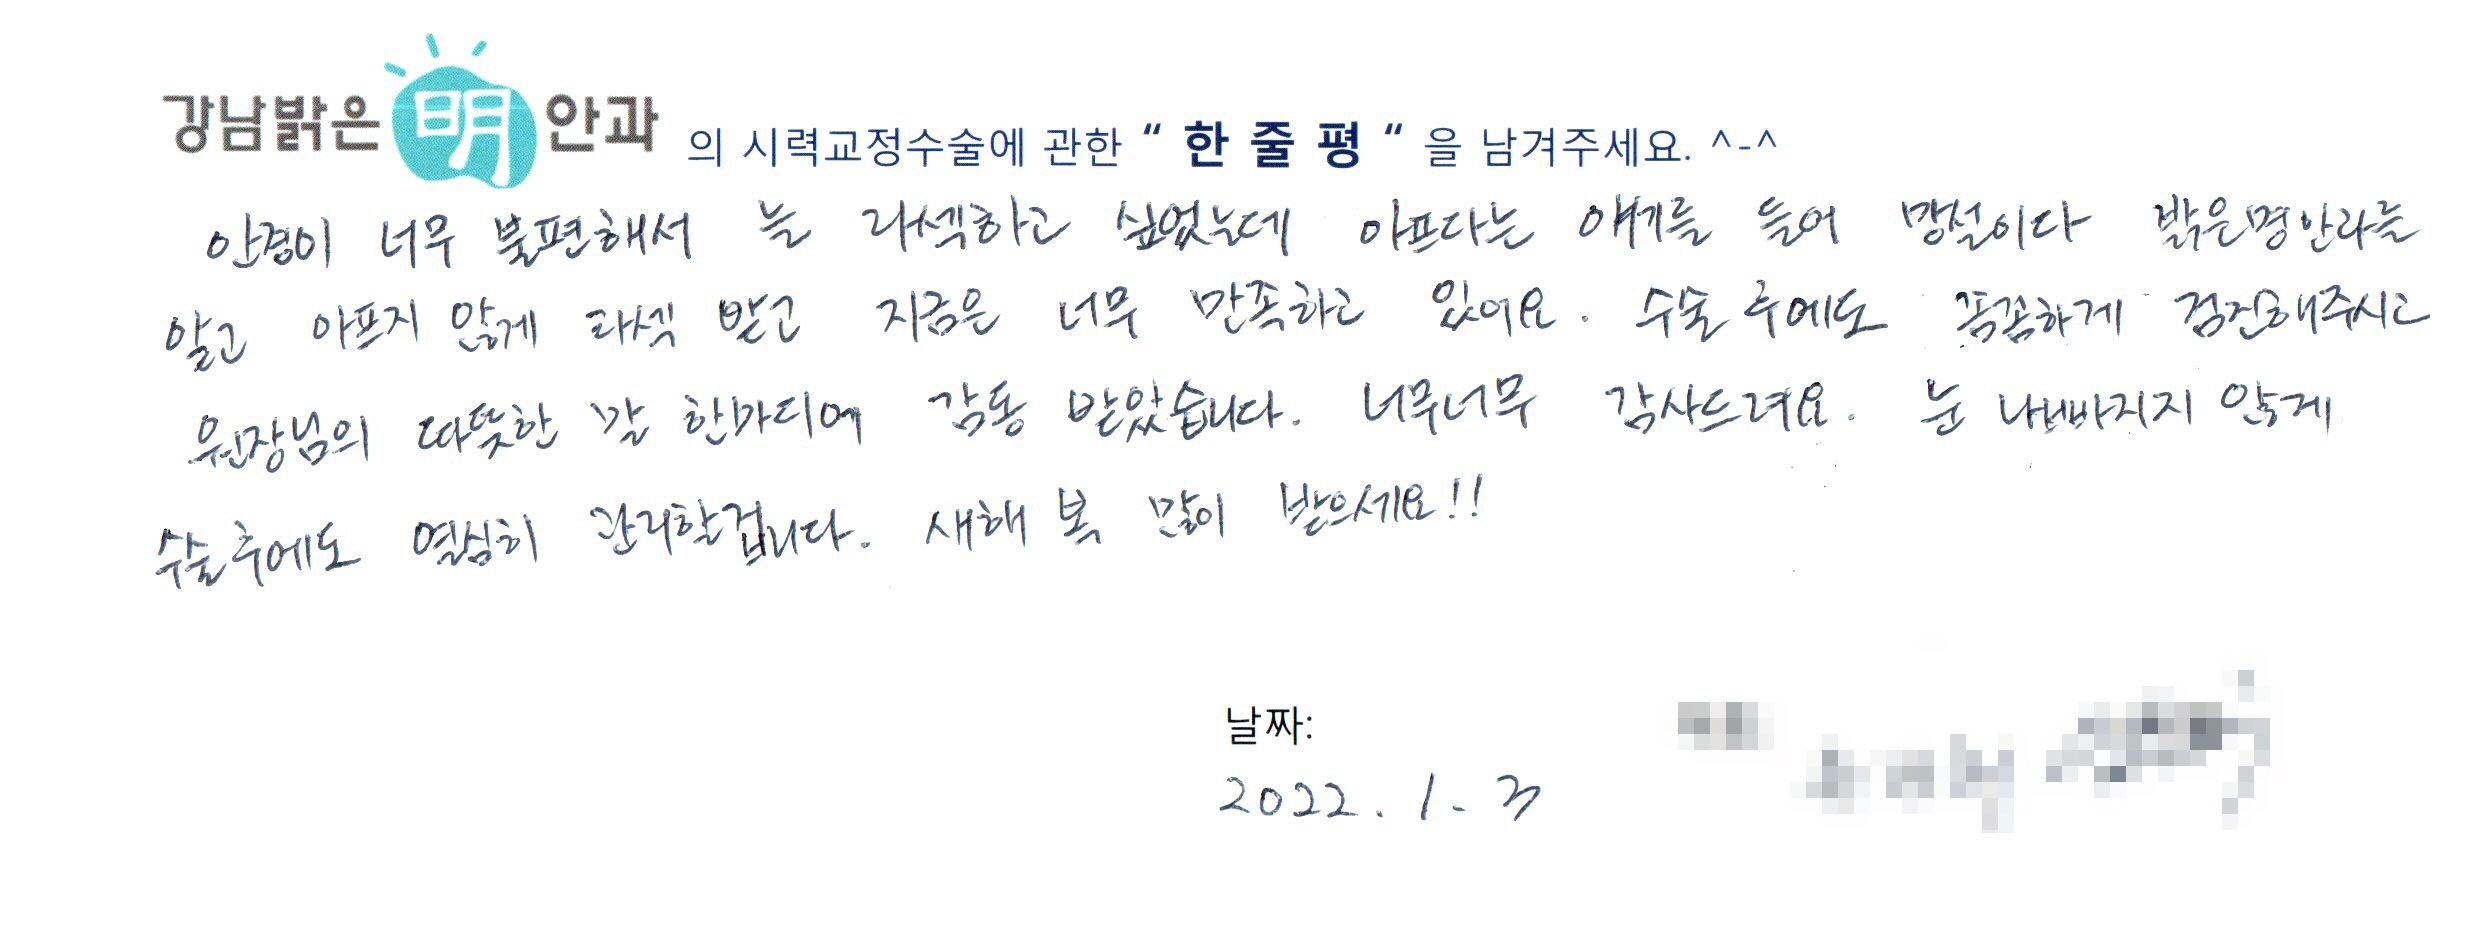 강남밝은明안과 의 시력교정수술에 관한 “ 한 줄 평 “ 을 남겨주세요. ^-^
안경이 너무 불편해서 늘 라섹하고 싶었는데 아프다는 얘기를 들어 망설이다 밝은명안과를
알고 아프지 않게 라섹 받고 지금은 너무 만족하고 있어요. 수술 후에도 꼼꼼하게 검진해주시고
원장님의 따뜻한 말 한마디에 감동 받았습니다. 너무너무 감사드려요. 눈 나빠지지 않게
수술 후에도 열심히 관리할겁니다. 새해 복 많이 받으세요!!
날짜:
2022. 1. 3